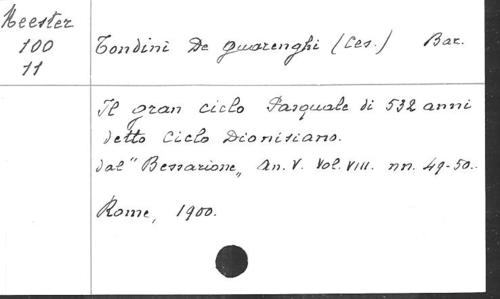 Meester
100
11
Tondini De Quarenghi (Ces.) Bar.
Il gran ciclo Pasquale di 532 anni
detto Ciclo Dionisiano.
dal "Bessarione„ An. V. Vol. VIII. nn. 49-50.
Rome, 1900.